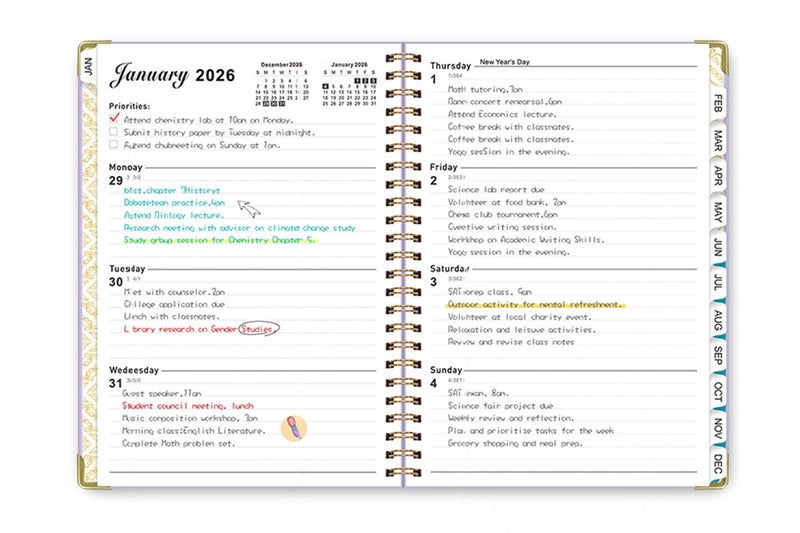 JAN
January 2026
December 2025
S M T W T F S
January 2026
S M T W T F S
Priorities:
Attend chemistry lab at 10am on Monday.
Submit history paper by Tuesday at midnight.
on Sunday at 1pm.
Monday
29
Debatetean practice,4pm
Astend Biology lecture.
Research meeting with advisor on climate change study
Study group session for Chemistry Chapter 5.
Tuesday
30
Meet with counselor.2pm
College application due
Linch with classmates.
Library research on Gender Studies.
Wedeesday
31
Guest speaker,11am
Student council meeting, lunch
Music conposition workshop, 3pm
Morning class:English Literature.
Conplete Math problem set.
Thursday
New Year's Day
1
1/364
Math tutoring,3pm
concert
Attend Economics lecture.
Coffee break with classmates.
Coffee break with classmates.
Yoga session in the evening.
Friday
2
Science lab report due
Volunteer at food bank, 2pm
Chess club tournament,6pm
writing session.
Workshop on Academic Writing Skills.
Yoga session in the evening.
Saturday
3
SAT prep class, 9am
Outdoor activity for nental refreshment.
Volunteer at local charity event.
Relaxation and leisuve activities.
Review and revise class notes
Sunday
4
SAT exan, 8am.
Science fair project due
Weekly review and reflection.
Plan and prioritize tasks for the week
Grocery shopping and neal prep.
FEB
MAR
APR
MAY
JUN
JUL
AUG
SEP
OCT
NOV
DEC